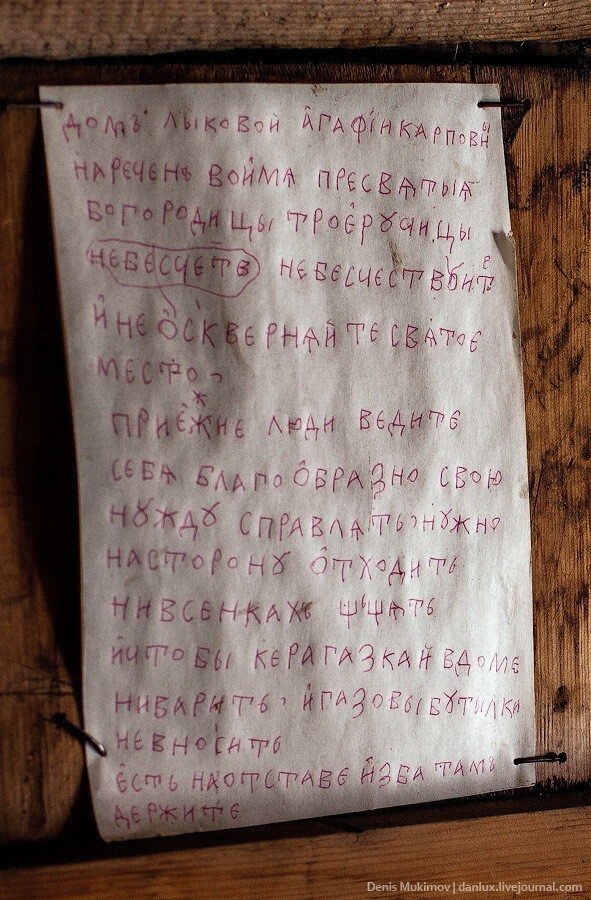 домъ лыковой агафiи карповны
наречень во имѧ пресватыѧ
богородицы троерꙋчицы
небесчете небесчествꙋите
й не ѡсквернайте сватое
место,
приежие люди ведите
себѧ благоѻбразно свою
нꙋждꙋ справлать, нужно
насторонꙋ ѻтходить
нивсенкахъ
йчтобы керагазкай вдоме
ниварить, йгазовы бꙋтилки
невносить
есть наотставе изба тамъ
держите
Denis Mukimov | danlux.livejournal.com